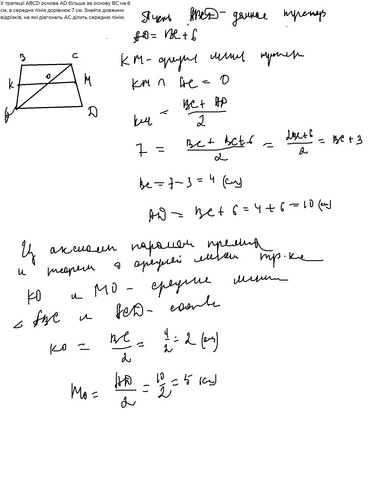 У трапеції ABCD основа AD більша за основу BC на 6
см, а середня лінія дорівнює 7 см. Знайти довжини
відрізків, на які діагональ AC ділить середню лінію.
B C
K O M
A D
ABCD - данная
AD = BC + 6
KM - средняя линия
KM ∩ AC = O
KM = BC + AD / 2
7 = BC + BC + 6 / 2 = 2BC + 6 / 2 = BC + 3
BC = 7 - 3 = 4 (см)
AD = BC + 6 = 4 + 6 = 10 (см)
Из аксиомы
и о средней линии
KO и MO - средние линии
ABC и ACD -
KO = BC / 2 = 4 / 2 = 2 (см)
MO = AD / 2 = 10 / 2 = 5 (см)